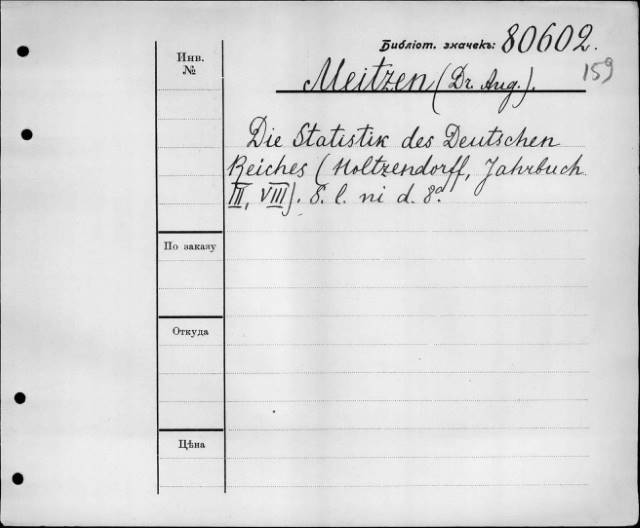 Библіот. значекъ: 80602.
159
Инв. №
Meitzen (Dr. Aug.).
Die Statistik des Deutschen
Reiches (Holtzendorff, Jahrbuch
III, VIII). S. l. ni d. 8º.
По заказу
Откуда
Цѣна